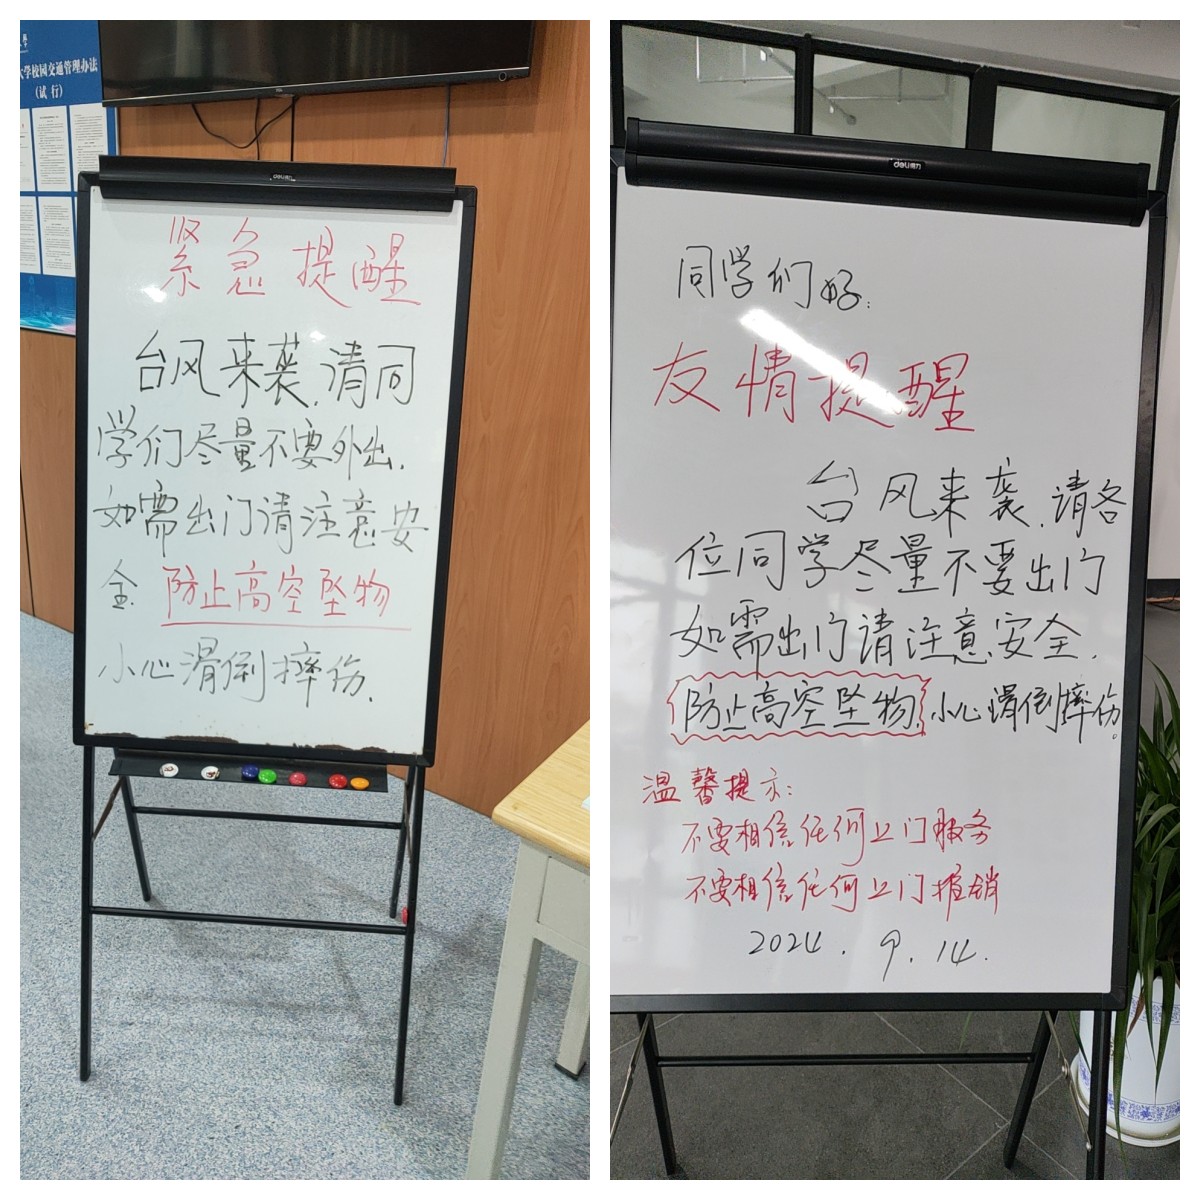 大学校园交通管理办法
(试行)
deli
紧急提醒
台风来袭,请同
学们尽量不要外出.
如需出门请注意安
全. 防止高空坠物
小心滑倒摔伤.
deli得力
同学们好:
友情提醒
台风来袭.请各
位同学尽量不要出门
如需出门请注意安全.
防止高空坠物.小心滑倒摔伤。
温馨提示:
不要相信任何上门服务
不要相信任何上门推销
2024.9.14.